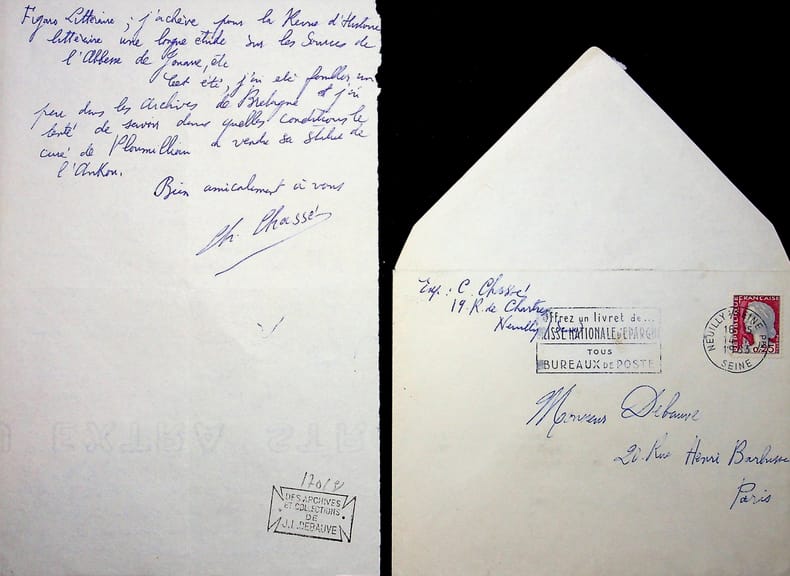 Figaro Littéraire ; j'achève pour la Revue d'Histoire
littéraire une longue étude sur les Sources de
l'Abbesse de Jouarre, etc
Cet été, j'ai été fouiller un
peu dans les Archives de Bretagne et j'ai
tenté de savoir dans quelles conditions le
curé de Ploumilliau a vendu sa Statue de
l'Ankou.
Bien amicalement à vous
Ch. Chassé
DES ARCHIVES
ET COLLECTIONS
DE
J.L. DEBAUVE
Exp : C. Chassé
19 R. de Chartres
Neuilly
Offrez un livret de...
CAISSE NATIONALE D'EPARGNE
TOUS
BUREAUX DE POSTE
NEUILLY S/SEINE
1963
SEINE
FRANÇAISE
Monsieur Debauve
20 Rue Henri Barbusse
Paris